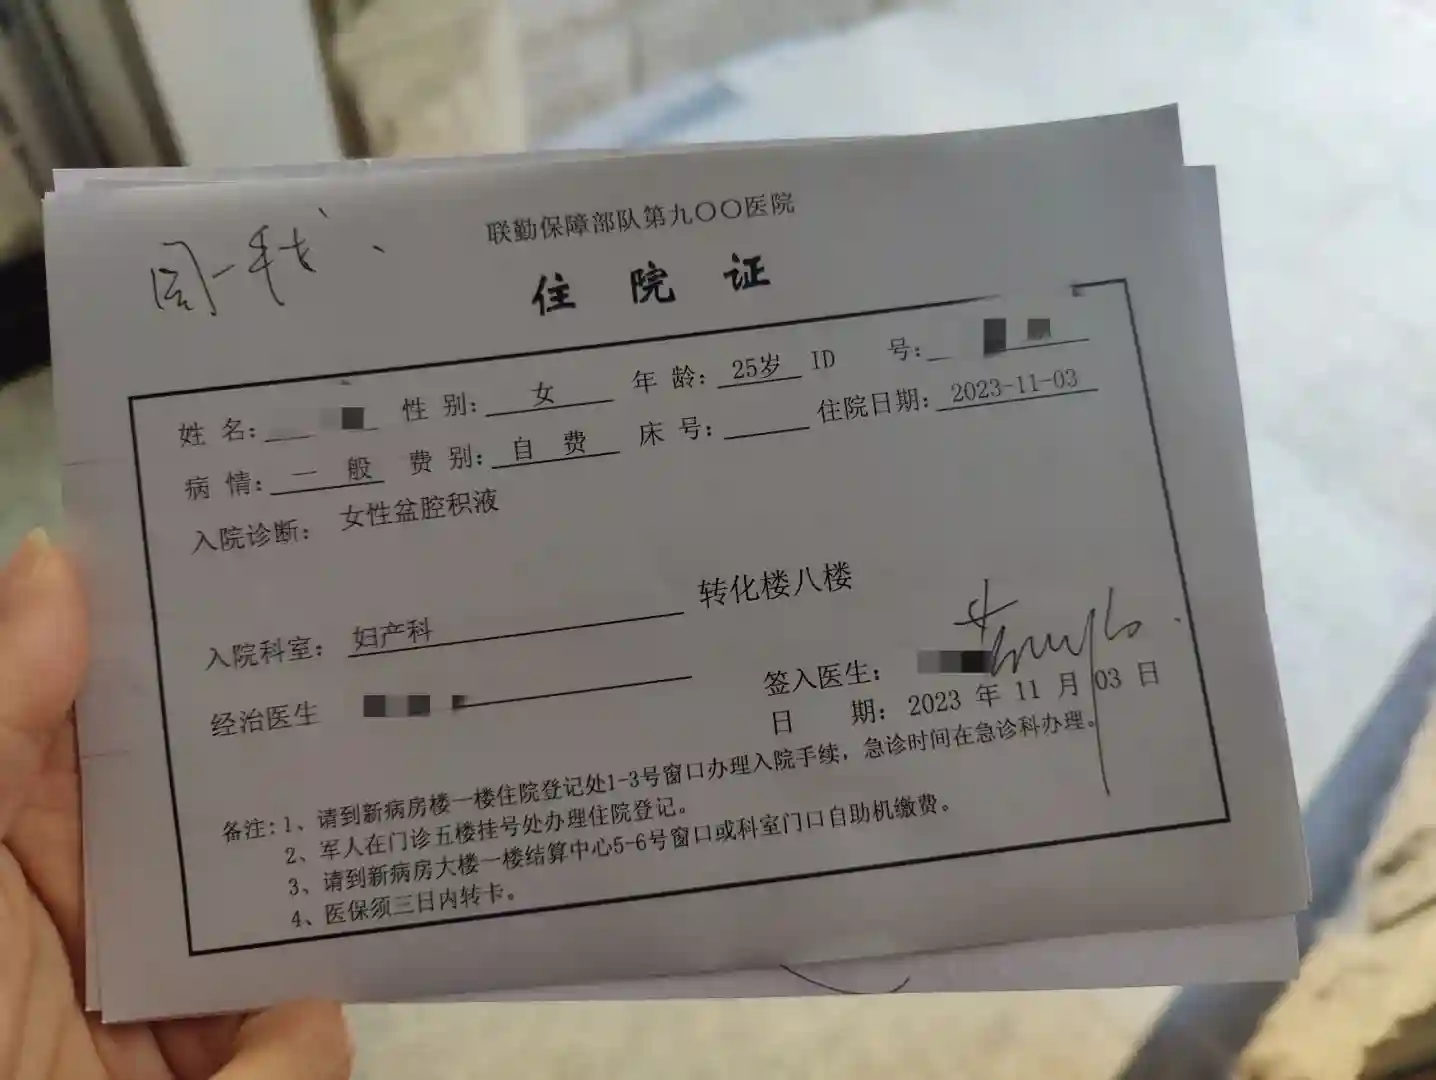 联勤保障部队第九〇〇医院
住院证
姓名: 性别: 女 年龄: 25岁 ID 号:
病情: 一般 费别: 自费 床号: 住院日期: 2023-11-03
入院诊断: 女性盆腔积液
入院科室: 妇产科 转化楼八楼
经治医生 签入医生:
日 期: 2023 年 11 月 03 日
备注: 1、请到新病房楼一楼住院登记处1-3号窗口办理入院手续, 急诊时间在急诊科办理。
2、军人在门诊五楼挂号处办理住院登记。
3、请到新病房大楼一楼结算中心5-6号窗口或科室门口自助机缴费。
4、医保须三日内转卡。